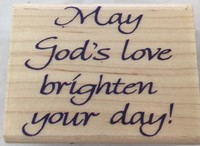 May
God's love
brighten
your day!